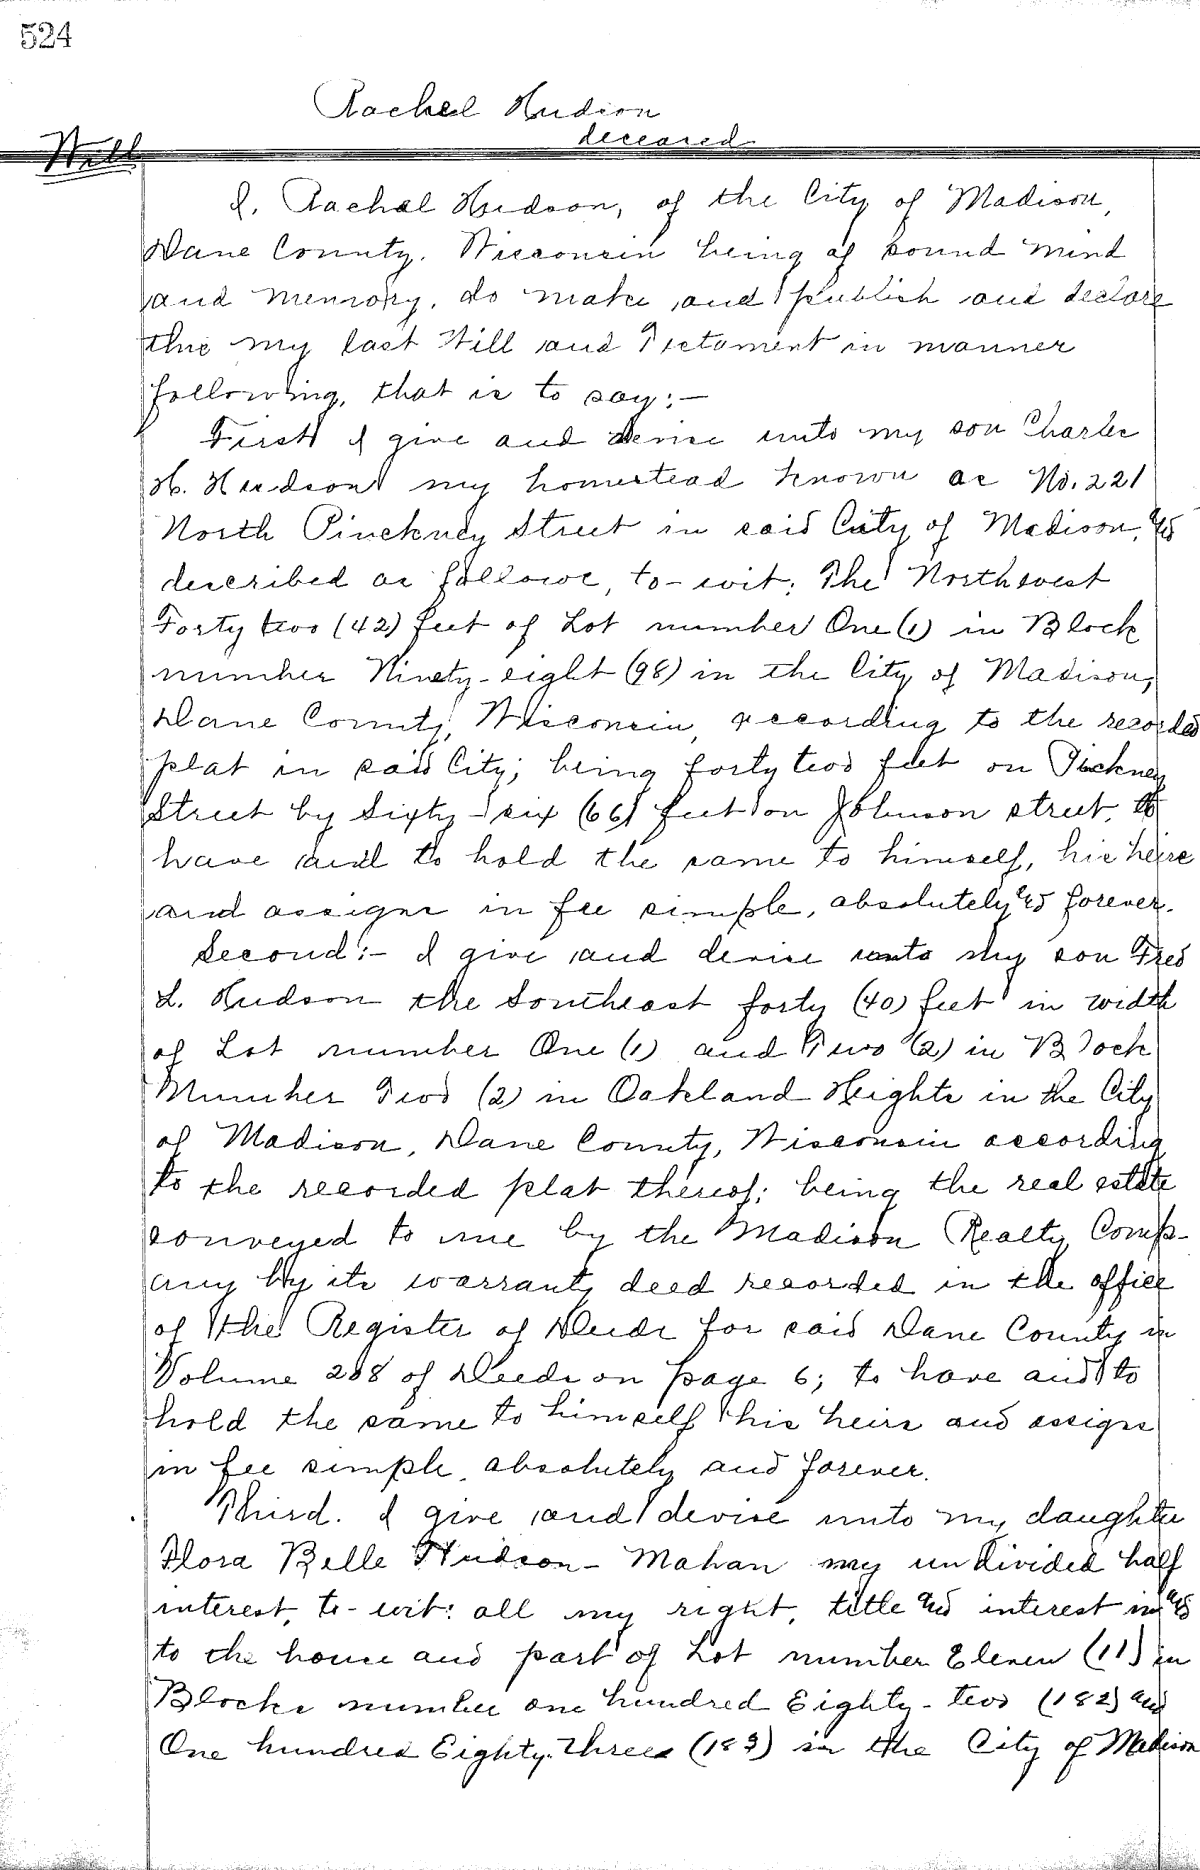 524
Rachel Hudson
deceased
Will
I, Rachel Hudson, of the City of Madison,
Dane County, Wisconsin being of sound mind
and memory, do make and publish and declare
this my last Will and Testament in manner
following, that is to say:—
First I give and devise unto my son Charles
H. Hudson my homestead known as No. 221
North Pinckney Street in said City of Madison, &
described as follows, to-wit: The Northwest
Forty two (42) feet of Lot number One (1) in Block
number Ninety-eight (98) in the City of Madison,
Dane County, Wisconsin, according to the recorded
plat in said City; being forty two feet on Pickney
Street by Sixty-six (66) feet on Johnson street, to
have and to hold the same to himself, his heirs
and assigns in fee simple, absolutely & forever.
Second:- I give and devise unto my son Fred
L. Hudson the Southeast forty (40) feet in width
of Lot number One (1) and Two (2) in Block
Number Two (2) in Oakland Heights in the City
of Madison, Dane County, Wisconsin according
to the recorded plat thereof; being the real estate
conveyed to me by the Madison Realty Comp-
any by its warranty deed recorded in the office
of the Register of Deeds for said Dane County in
Volume 288 of Deeds on page 6; to have and to
hold the same to himself his heirs and assigns
in fee simple, absolutely and forever.
Third. I give and devise unto my daughter
Flora Belle Hudson-Mahan my undivided half
interest, to-wit: all my right, title and interest in &
to the house and part of Lot number Eleven (11) in
Blocks number one hundred Eighty-two (182) and
One hundred Eighty-three (183) in the City of Madison